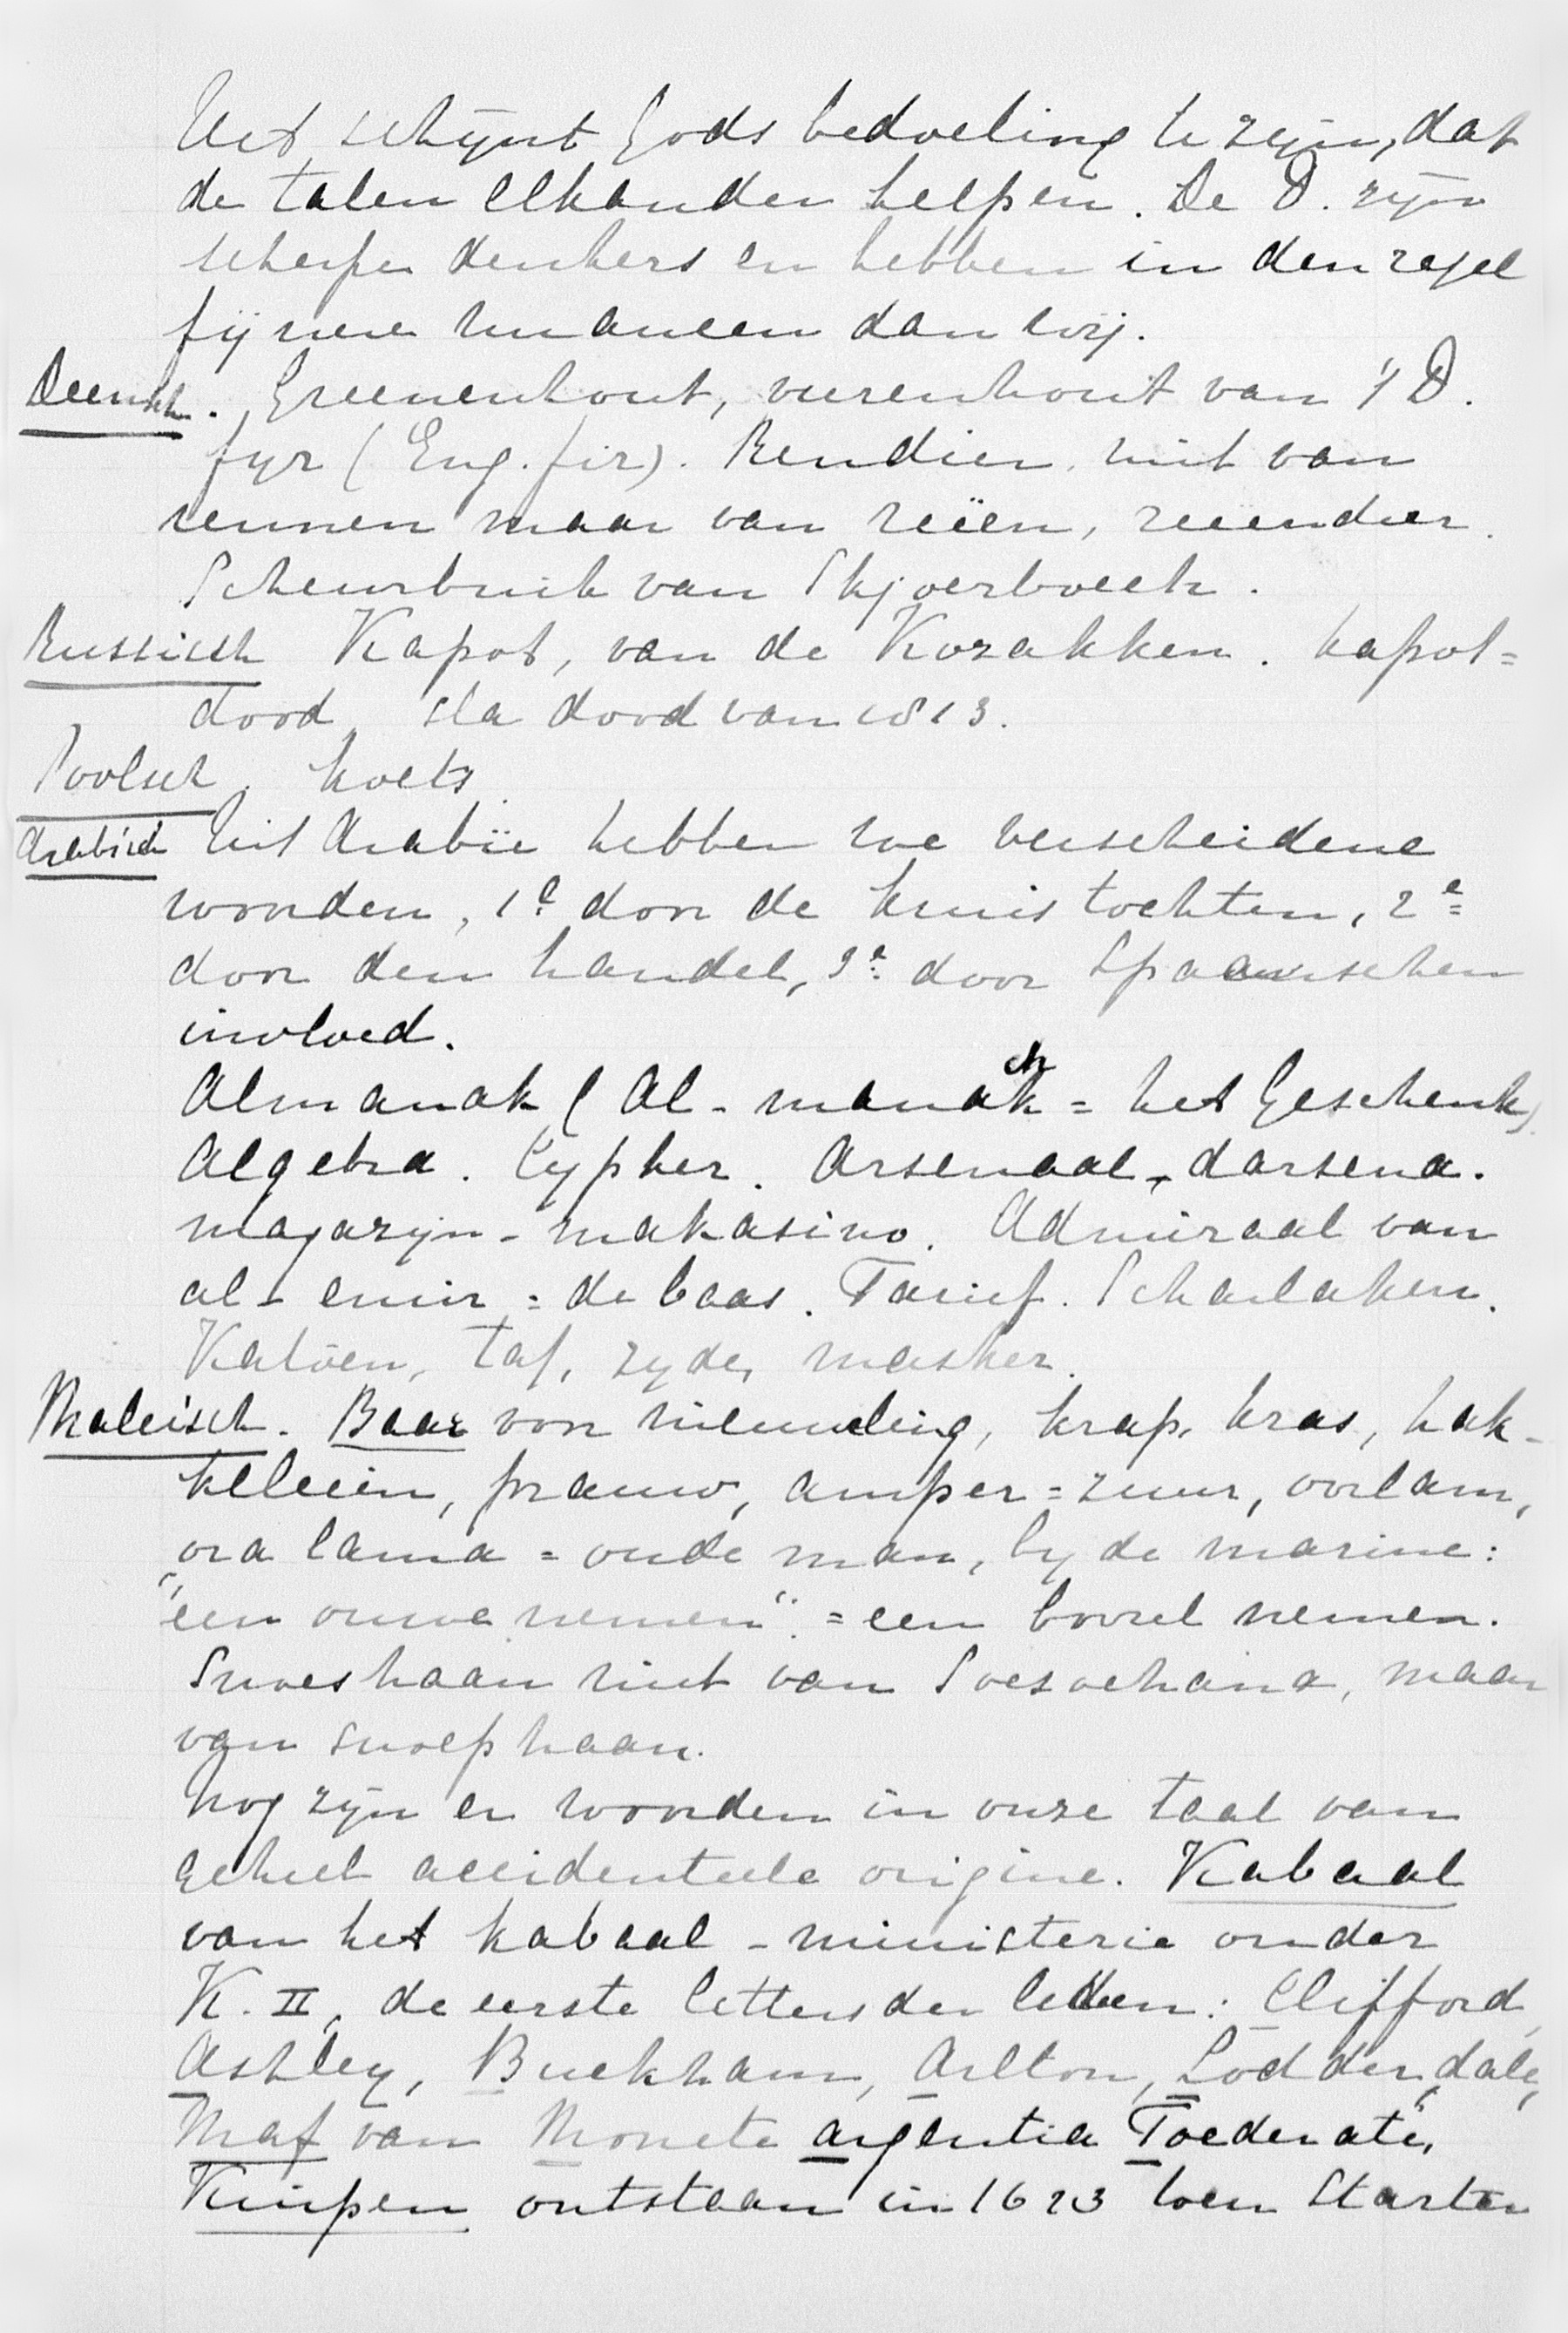 Het schijnt Gods bedoeling te zijn, dat
de talen elkander helpen. De D. zijn
scherpe denkers en hebben in den regel
fijnere nuancen dan wij.
Deensch. Greenenhout, vurenhout van 't D.
fyr (Eng. fir). Rendier niet van
rennen maar van reiën, reiendier.
Scheurbuik van Skjoerboeck.
Russisch Kapot, van de Kozakken. kapot=
dood, sla dood van 1813.
Poolsch. koets.
Arabisch Uit Arabië hebben we verscheidene
woorden, 1e door de kruistochten, 2e
door den handel, 3e door Spaanschen
invloed.
Almanak (Al-manach = het Geschenk).
Algebra. Cypher. Arsenaal - darsena.
magazijn - makasino. Admiraal van
al-emir = de baas. Tarief. Scharlaken.
Katoen, taf, zyde, masker.
Maleisch. Baar voor nieuweling, krap, kras, kak-
kelein, prauw, amper = zuur, oorlam,
ora lama = oude man, by de marine:
"een ouwe nemen" = een borrel nemen.
Snoeshaan niet van Soesoehana, maar
van snoephaan.
Nog zijn er woorden in onze taal van
geheel accidenteele origine. Kabaal
van het kabaal-ministerie onder
K. II, de eerste letters der leden: Clifford,
Ashley, Buckham, Arlton, Lodderdale,
Maf van Moneta argentia Foederati,
Kuipen ontstaan in 1623 toen Starter